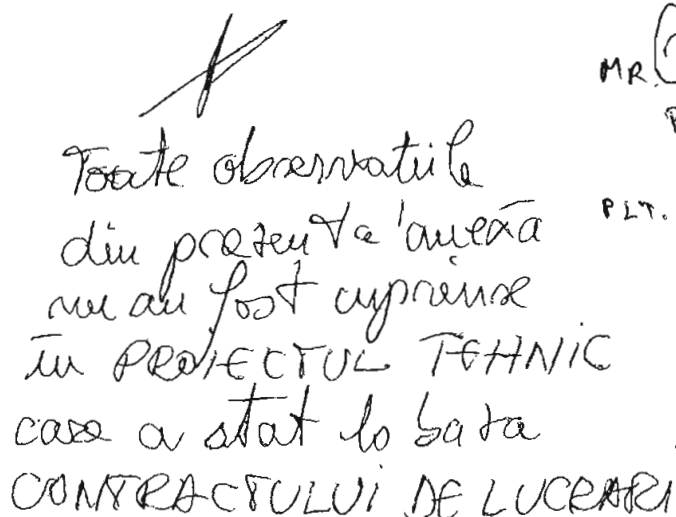 MR.
Toate observatiile
PLT.
din prezenta anexă
nu au fost cuprinse
în PROIECTUL TEHNIC
care a stat la baza
CONTRACTULUI DE LUCRARI